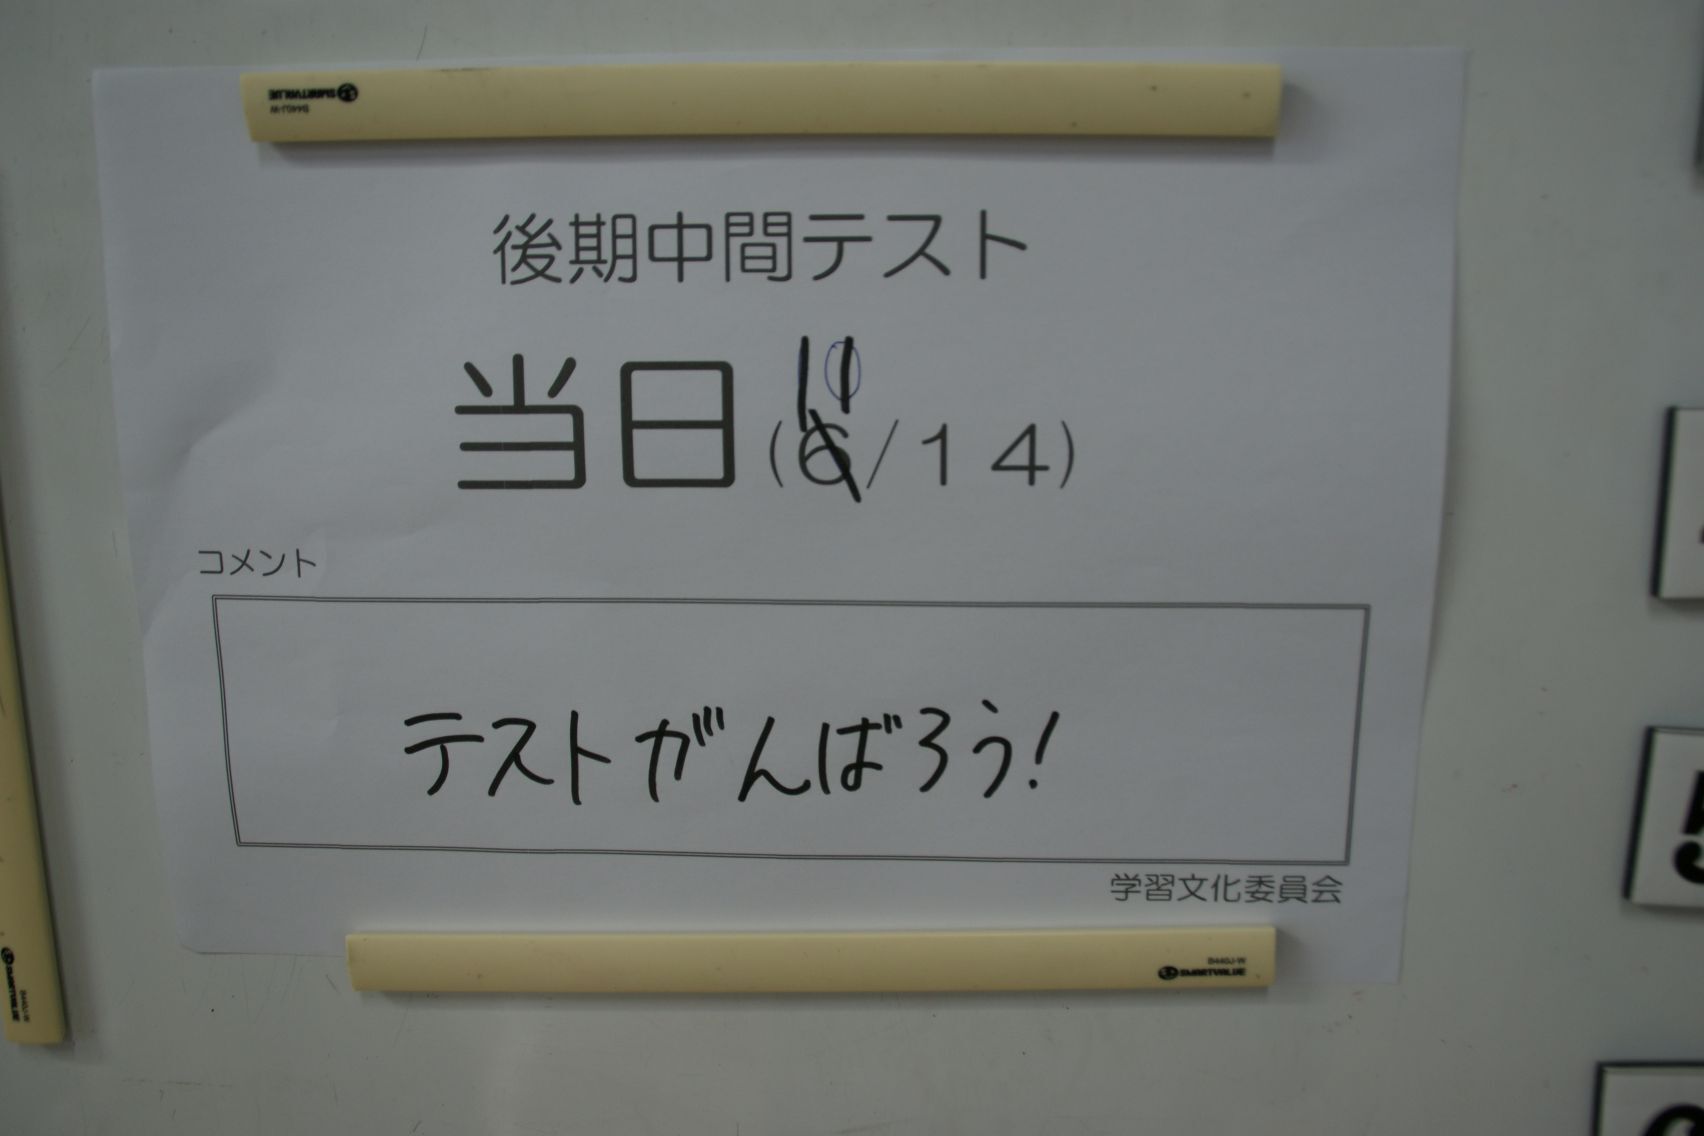 SMARTVALUE
B440J-W
後期中間テスト
11
当日(6/14)
コメント
テストがんばろう!
学習文化委員会
B440J-W
SMARTVALUE
SMARTVALUE
B440J-W
5